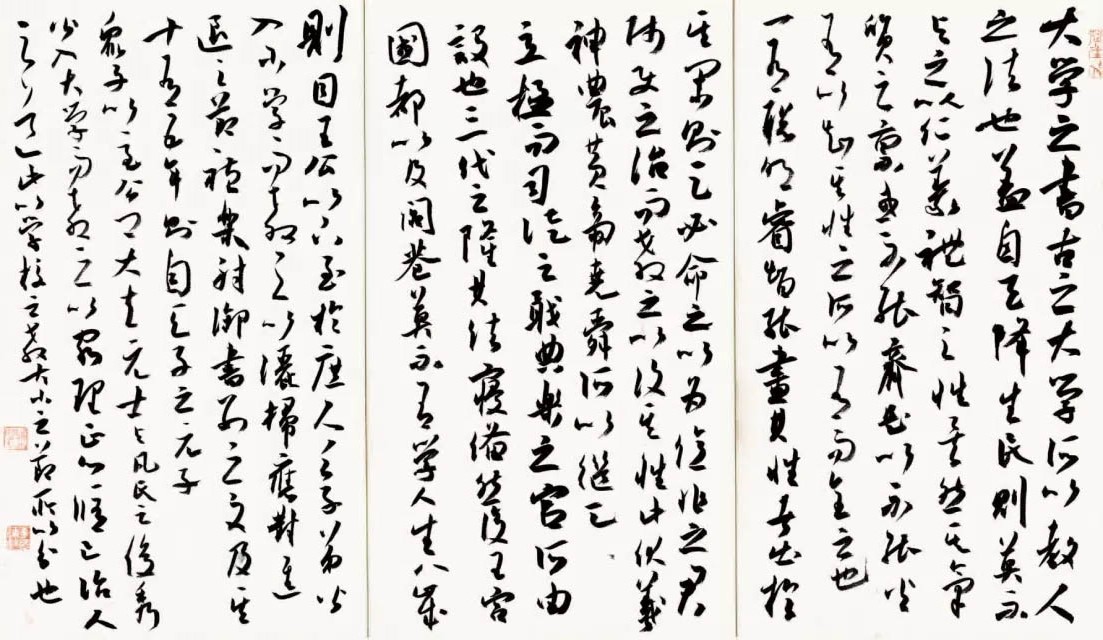 大学之書古之大学所以教人
之法也蓋自天降生民則莫不
与之以仁義禮智之性矣然其氣
質之稟或不能齊是以不能皆
有以知其性之所以有而全之也
一有聰明睿智能盡其性者出於
其間則天必命之以为億兆之君
師使之治而教之以復其性此伏羲
神農黄帝堯舜所以继天
立極而司徒之職典樂之官所由
設也三代之隆其法寝備然後王宮
國都以及閭巷莫不有学人生八歲
則自王公以下至於庶人之子弟皆
入小学而教之以灑掃應對進
退之節禮樂射御書數之文及其
十有五年則自天子之元子
衆子以至公卿大夫元士与凡民之俊秀
皆入大学而教之以窮理正心修己治人
之道此以学校之教大小之節所以分也